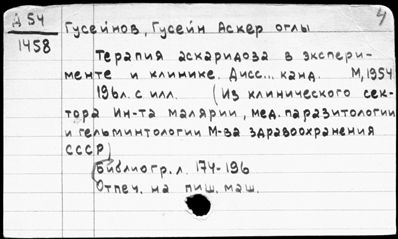 Д 54
1458
Гусейнов, Гусейн Аскер оглы
4
Терапия аскаридоза в экспери-
менте и клинике. Дисс... канд. М, 1954
196л. с илл. (Из клинического сек-
тора Ин-та малярии, мед. паразитологии
и гельминтологии М-за здравоохранения
СССР)
Библиогр. л. 174-196
Отпеч. на пиш. маш.